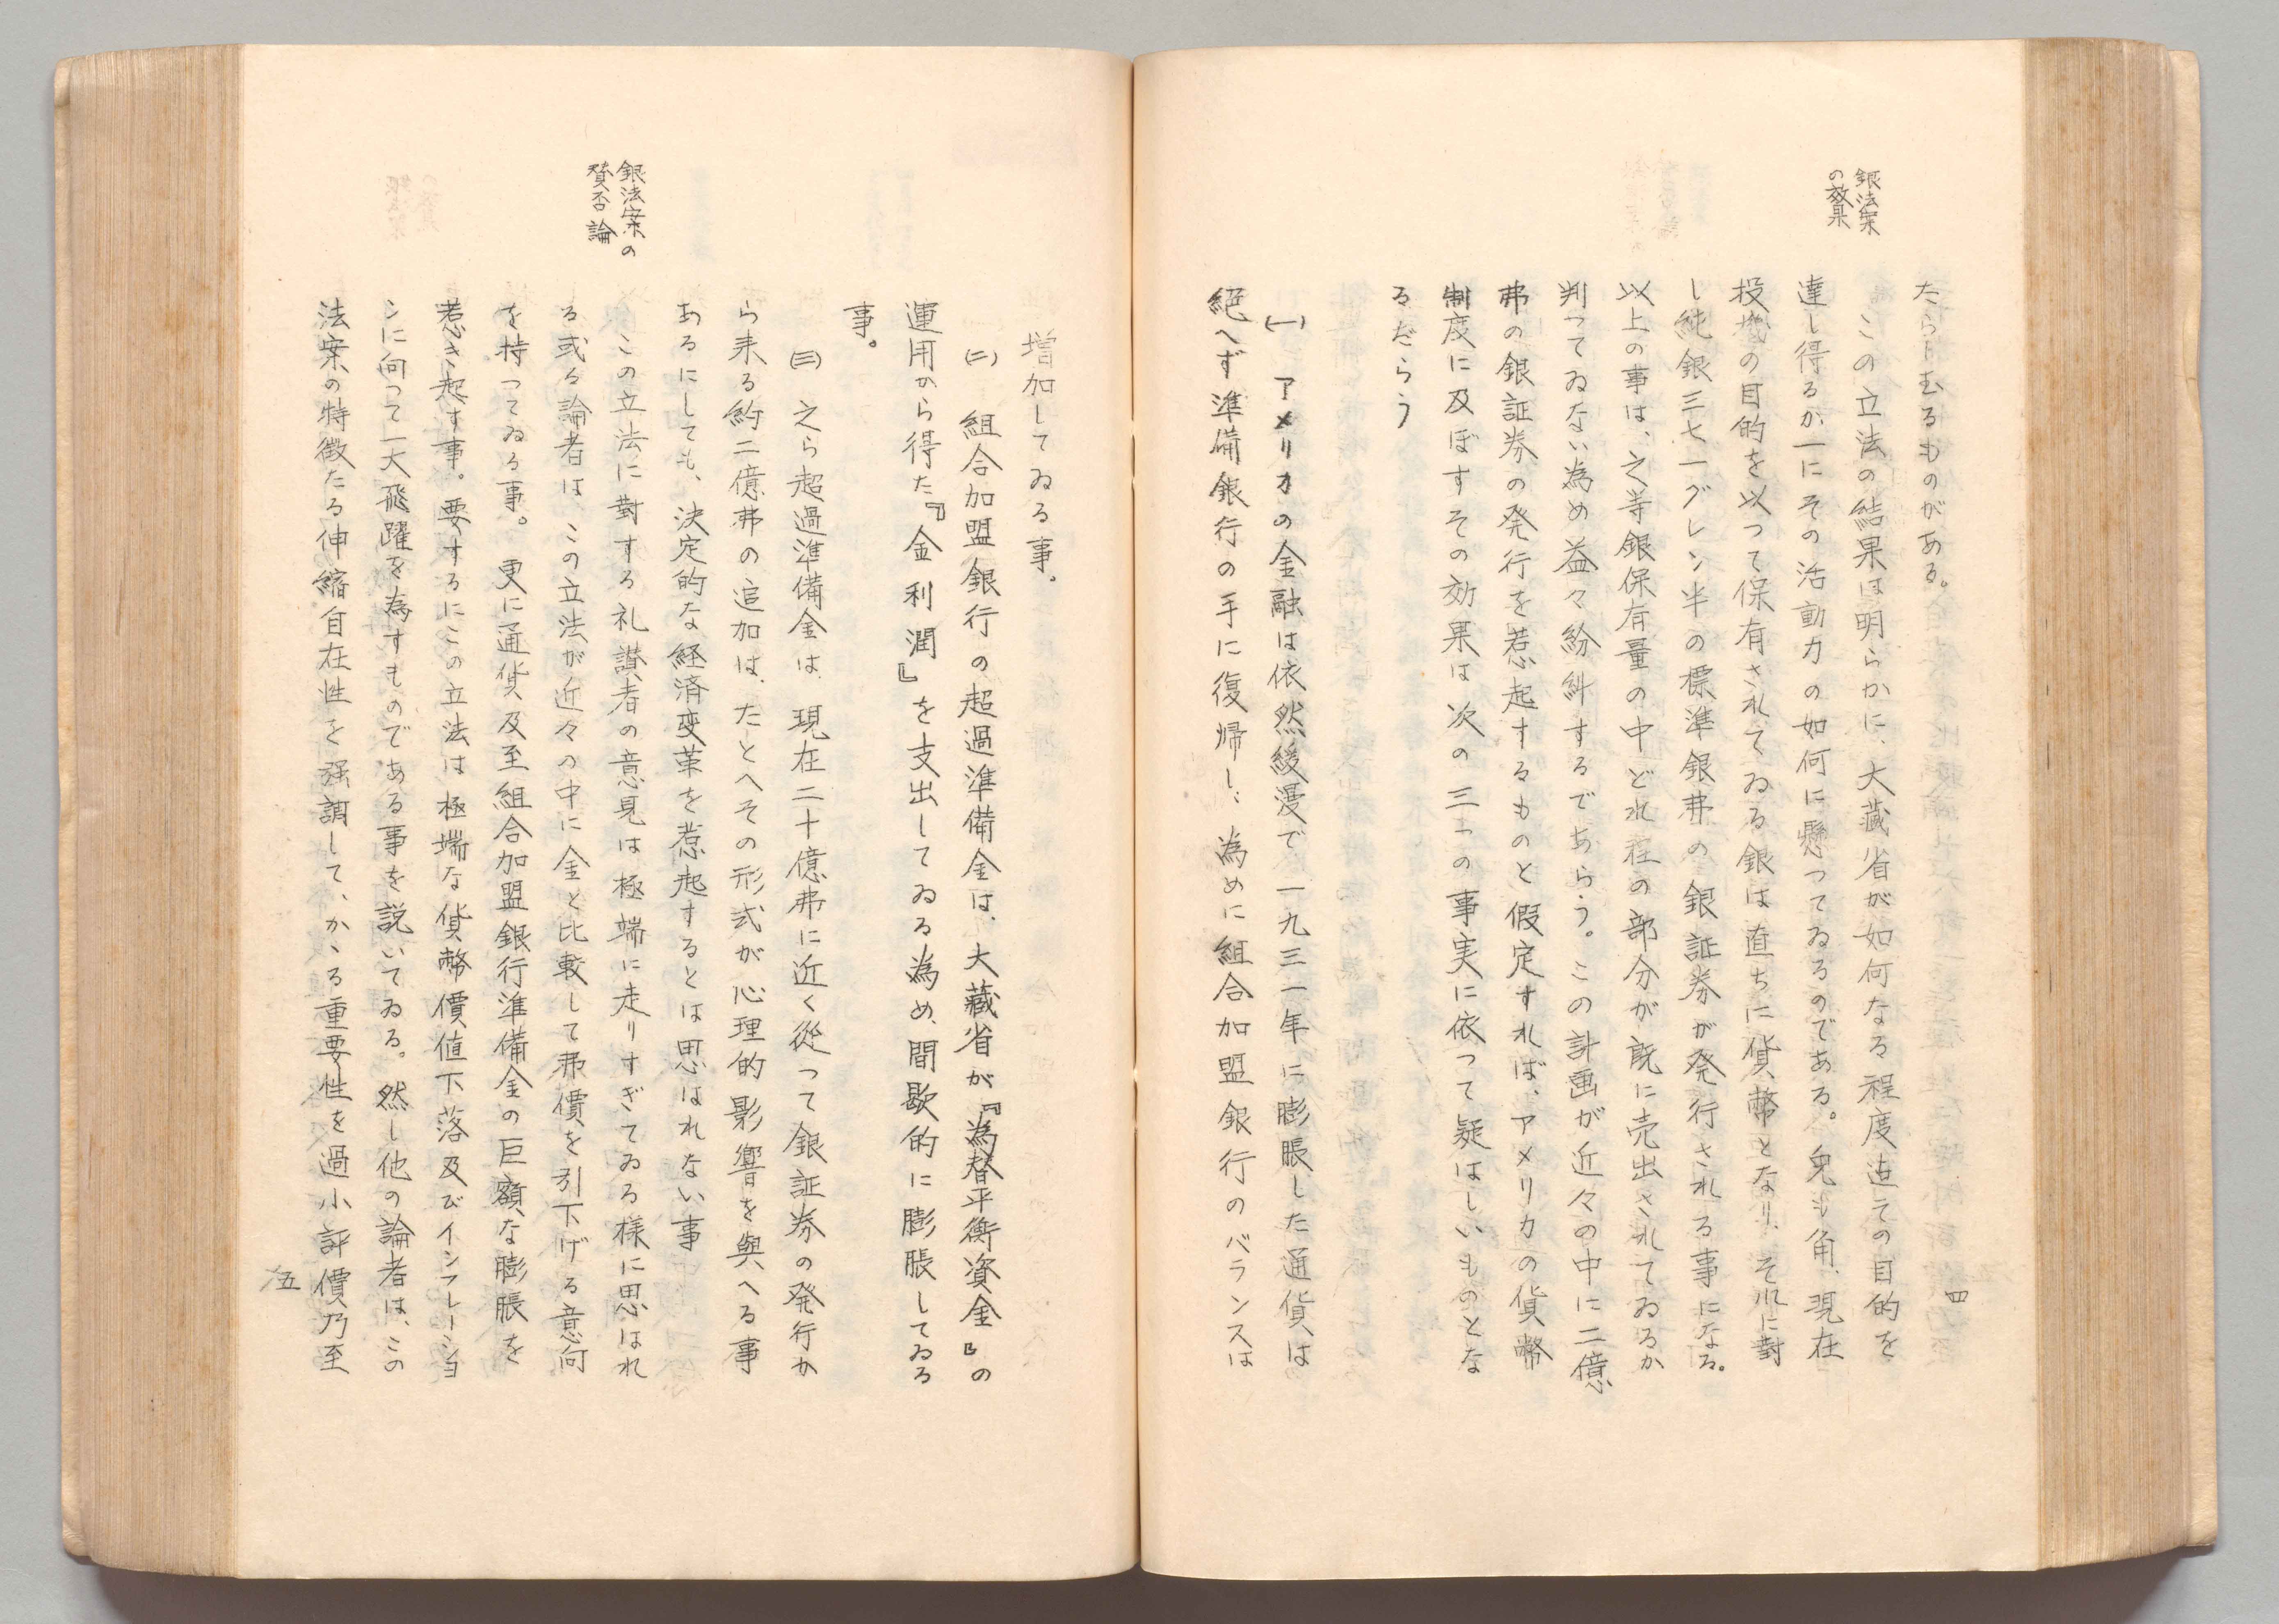 四
銀法案
の效果
たらし玉るものがある。
この立法の結果は明らかに、大藏省が如何なる程度迠での目的を
達し得るか一にその活動力の如何に懸つてゐるのである。兔も角、現在
投機の目的を以つて保有されてゐる銀は直ちに貨幣となり、それに對
し純銀三七一グレン半の標準銀弗の銀証券が発行される事になる。
以上の事は、之等銀保有量の中どれ程の部分が既に売出されてゐるか
判つてゐない為め益々紛糾するであらう。この計画が近々の中に二億
弗の銀証券の発行を惹起するものと假定すれば、アメリカの貨幣
制度に及ぼすその効果は次の三つの事実に依つて疑はしいものとな
るだらう
(一) アメリカの金融は依然緩漫で一九三一年に膨脹した通貨は
絶へず準備銀行の手に復帰し、為めに組合加盟銀行のバランスは
増加してゐる事。
(二) 組合加盟銀行の超過準備金は、大藏省が『為替平衡資金』の
運用から得た『金利潤』を支出してゐる為め、間歇的に膨脹してゐる
事。
(三) 之ら超過準備金は、現在二十億弗に近く從つて銀証券の発行か
ら来る約二億弗の追加は、たとへその形式が心理的影響を與へる事
あるにしても、決定的な経済変革を惹起するとは思はれない事
銀法案の
賛否論
この立法に對する礼讃者の意見は極端に走りすぎてゐる様に思はれ
る或る論者は、この立法が近々の中に金と比較して弗價を引下げる意向
を持つてゐる事。更に通貨及至組合加盟銀行準備金の巨額な膨脹を
惹き起す事。要するにこの立法は極端な貨幣價値下落及びインフレーショ
ンに向つて一大飛躍を為すものである事を説いてゐる。然し他の論者は、この
法案の特徴たる伸縮自在性を强調して、かゝる重要性を過小評價乃至
五